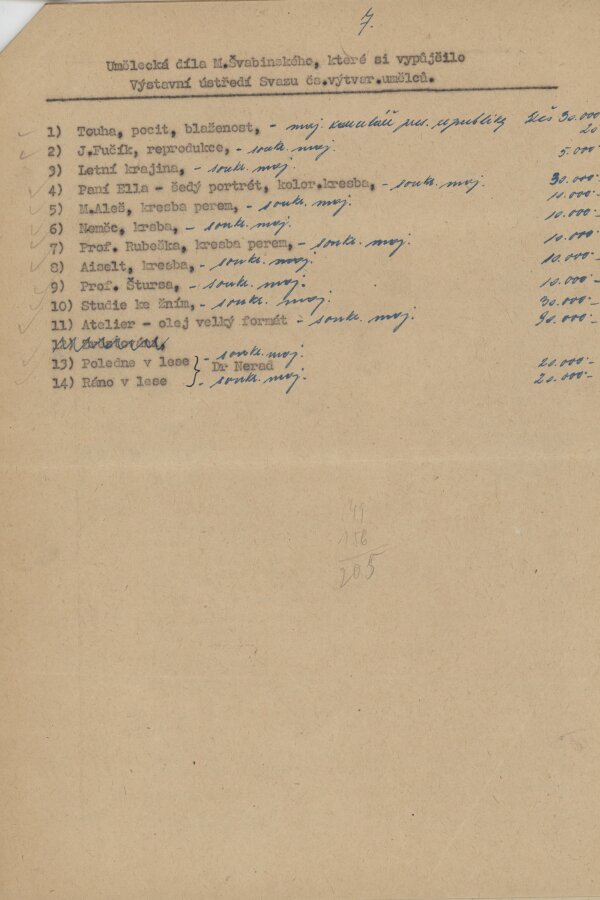 7.
Umělecká díla M.Švabinského, které si vypůjčilo
Výstavní ústředí Svazu čs.výtvar.umělců.
1) Touha, pocit, blaženost, - maj. kanceláře pres. republiky Kčs 30.000
20
2) J.Fučík, reprodukce, - soukr. maj. 5.000-
3) Letní krajina, - soukr. maj.
4) Paní Ella - šedý portrét, kolor.kresba, - soukr. maj. 30.000-
5) M.Aleš, kresba perem, - soukr. maj. 10.000-
6) Něměc, kresba, - soukr. maj. 10.000-
7) Prof. Rubeška, kresba perem, - soukr. maj. 10.000-
8) Aiselt, kresba, - soukr. maj. 10.000-
9) Prof. Štursa, - soukr. maj. 10.000-
10) Studie ke žním, - soukr. maj. 30.000-
11) Atelier - olej velký formát - soukr. maj. 90.000-
13) Poledne v lese - soukr. maj. 20.000-
Dr Nerad
14) Ráno v lese - soukr. maj. 20.000-
49
156
205